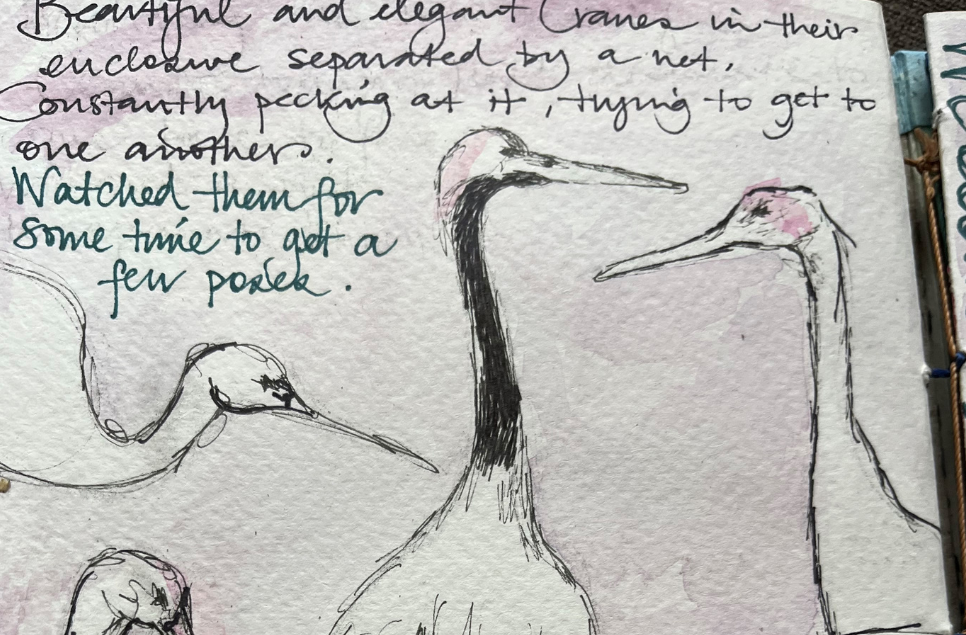 Beautiful and elegant Cranes in their
enclosure separated by a net.
Constantly pecking at it, trying to get to
one anothers.
Watched them for
some time to get a
few poses.